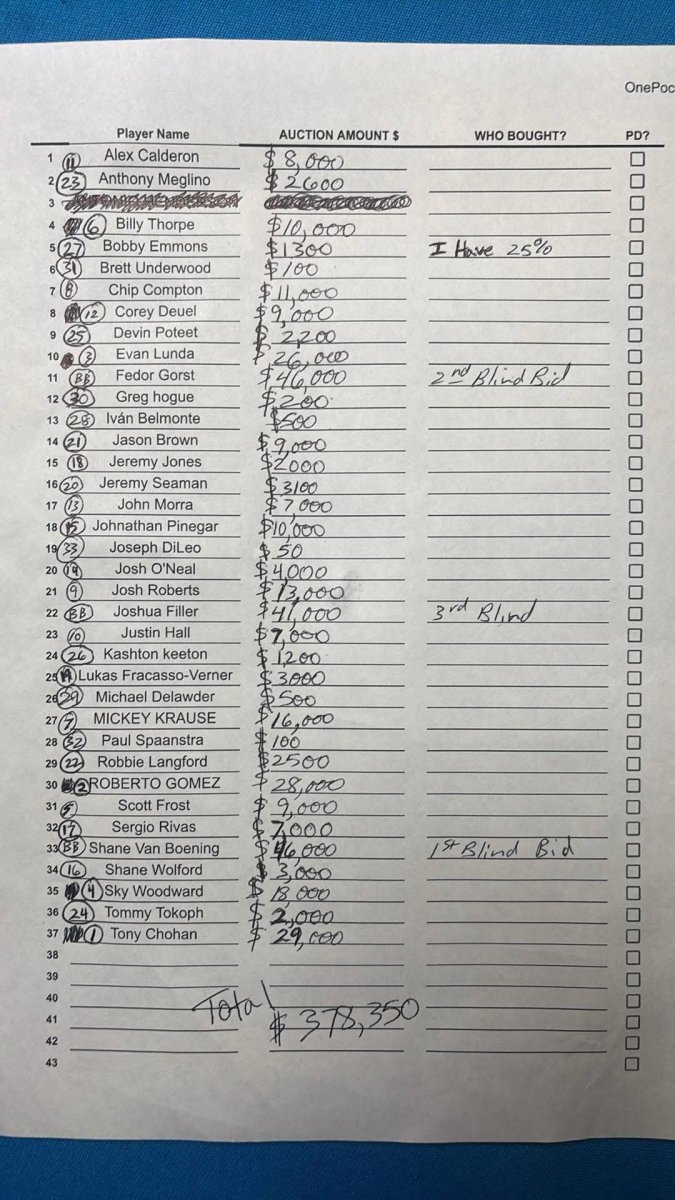 OnePoc
Player Name AUCTION AMOUNT $ WHO BOUGHT? PD?
1 11 Alex Calderon $ 8,000
2 23 Anthony Meglino $ 2600
3
4 6 Billy Thorpe $10,000
5 27 Bobby Emmons $1300 I Have 25%
6 31 Brett Underwood $100
7 8 Chip Compton $11,000
8 12 Corey Deuel $9,000
9 25 Devin Poteet $ 2,200
10 3 Evan Lunda $ 26,000
11 BB Fedor Gorst $46,000 2nd Blind Bid
12 30 Greg hogue $200
13 28 Iván Belmonte $500
14 21 Jason Brown $9,000
15 18 Jeremy Jones $2000
16 20 Jeremy Seaman $3100
17 13 John Morra $7,000
18 15 Johnathan Pinegar $10,000
19 33 Joseph DiLeo $50
20 14 Josh O'Neal $4,000
21 9 Josh Roberts $13,000
22 BB Joshua Filler $41,000 3rd Blind
23 10 Justin Hall $7,000
24 26 Kashton keeton $1,200
25 19 Lukas Fracasso-Verner $3000
26 29 Michael Delawder $500
27 7 MICKEY KRAUSE $16,000
28 32 Paul Spaanstra $100
29 22 Robbie Langford $2500
30 2 ROBERTO GOMEZ $ 28,000
31 5 Scott Frost $ 9,000
32 17 Sergio Rivas $ 7,000
33 BB Shane Van Boening $46,000 1st Blind Bid
34 16 Shane Wolford $ 3,000
35 4 Sky Woodward $ 18,000
36 24 Tommy Tokoph $ 2,000
37 1 Tony Chohan $ 29,000
38
39
40
Total
41 $ 378,350
42
43